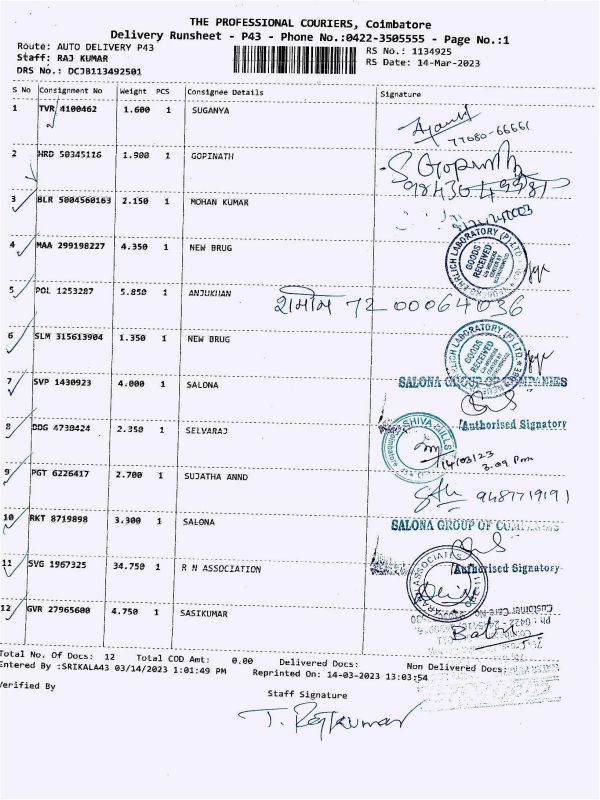 THE PROFESSIONAL COURIERS, Coimbatore
Delivery Runsheet - P43 - Phone No.:0422-3505555 - Page No.:1
Route: AUTO DELIVERY P43
RS No.: 1134925
Staff: RAJ KUMAR
RS Date: 14-Mar-2023
DRS No.: DCJB113492501
S No Consignment No Weight PCS Consignee Details Signature
1 TVR 4100462 1.600 1 SUGANYA
77080-66661
2 HRD 50345116 1.900 1 GOPINATH
S Gopinath
3 BLR 5004560163 2.150 1 MOHAN KUMAR
4 MAA 299198227 4.350 1 NEW BRUG
LABORATORY (P) LTD
GOODS RECEIVED
5 POL 1253287 5.850 1 ANJUKHAN
72 00064036
6 SLM 315613904 1.350 1 NEW BRUG
LABORATORY (P) LTD
GOODS RECEIVED
7 SVP 1430923 4.000 1 SALONA
SALONA GROUP OF COMPANIES
Authorised Signatory
8 DDG 4730424 2.350 1 SELVARAJ
SHIVA MILLS
14/03/23
3.09 Pm
9 PGT 6226417 2.700 1 SUJATHA ANND
9487719191
10 RKT 8719898 3.300 1 SALONA
SALONA GROUP OF COMPANIES
Authorised Signatory
11 SVG 1967325 34.750 1 R N ASSOCIATION
12 GVR 27965600 4.750 1 SASIKUMAR
Customer Care No
Total No. Of Docs: 12 Total COD Amt: 0.00 Delivered Docs: Non Delivered Docs:
Entered By :SRIKALA43 03/14/2023 1:01:49 PM Reprinted On: 14-03-2023 13:03:54
Verified By
Staff Signature
T. Rajkumar